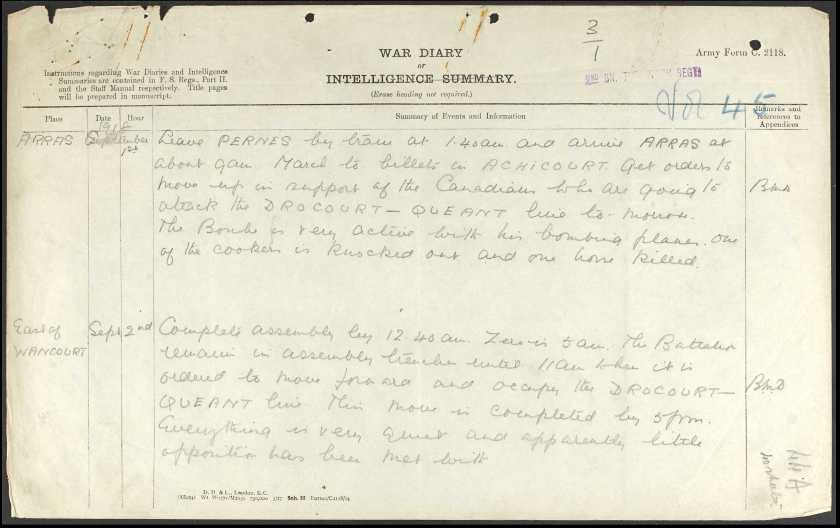 3
1
WAR DIARY
or
INTELLIGENCE SUMMARY.
(Erase heading not required.)
Army Form C. 2118.
Instructions regarding War Diaries and Intelligence
Summaries are contained in F. S. Regs., Part II.
and the Staff Manual respectively. Title pages
will be prepared in manuscript.
Vol 45
Place Date Hour Summary of Events and Information Remarks and
references to
Appendices
ARRAS September 1st Leave PERNES by train at 1.40am and arrive ARRAS at
about 9am March to billets in ACHICOURT. Get orders to
move up in support of the Canadians who are going to
attack the DROCOURT – QUEANT line to-morrow.
The Boche is very active with his bombing planes. One
of the cookers is knocked out and one horse killed.
East of
WANCOURT Sept 2nd Complete assembly by 12.40am. Zero is 5am. The Battalion
remain in assembly trenches until 11am when it is
ordered to move forward and occupy the DROCOURT –
QUEANT line This move is completed by 5pm.
Everything is very quiet and apparently little
opposition has been met with
D. D. & L., London, E.C.